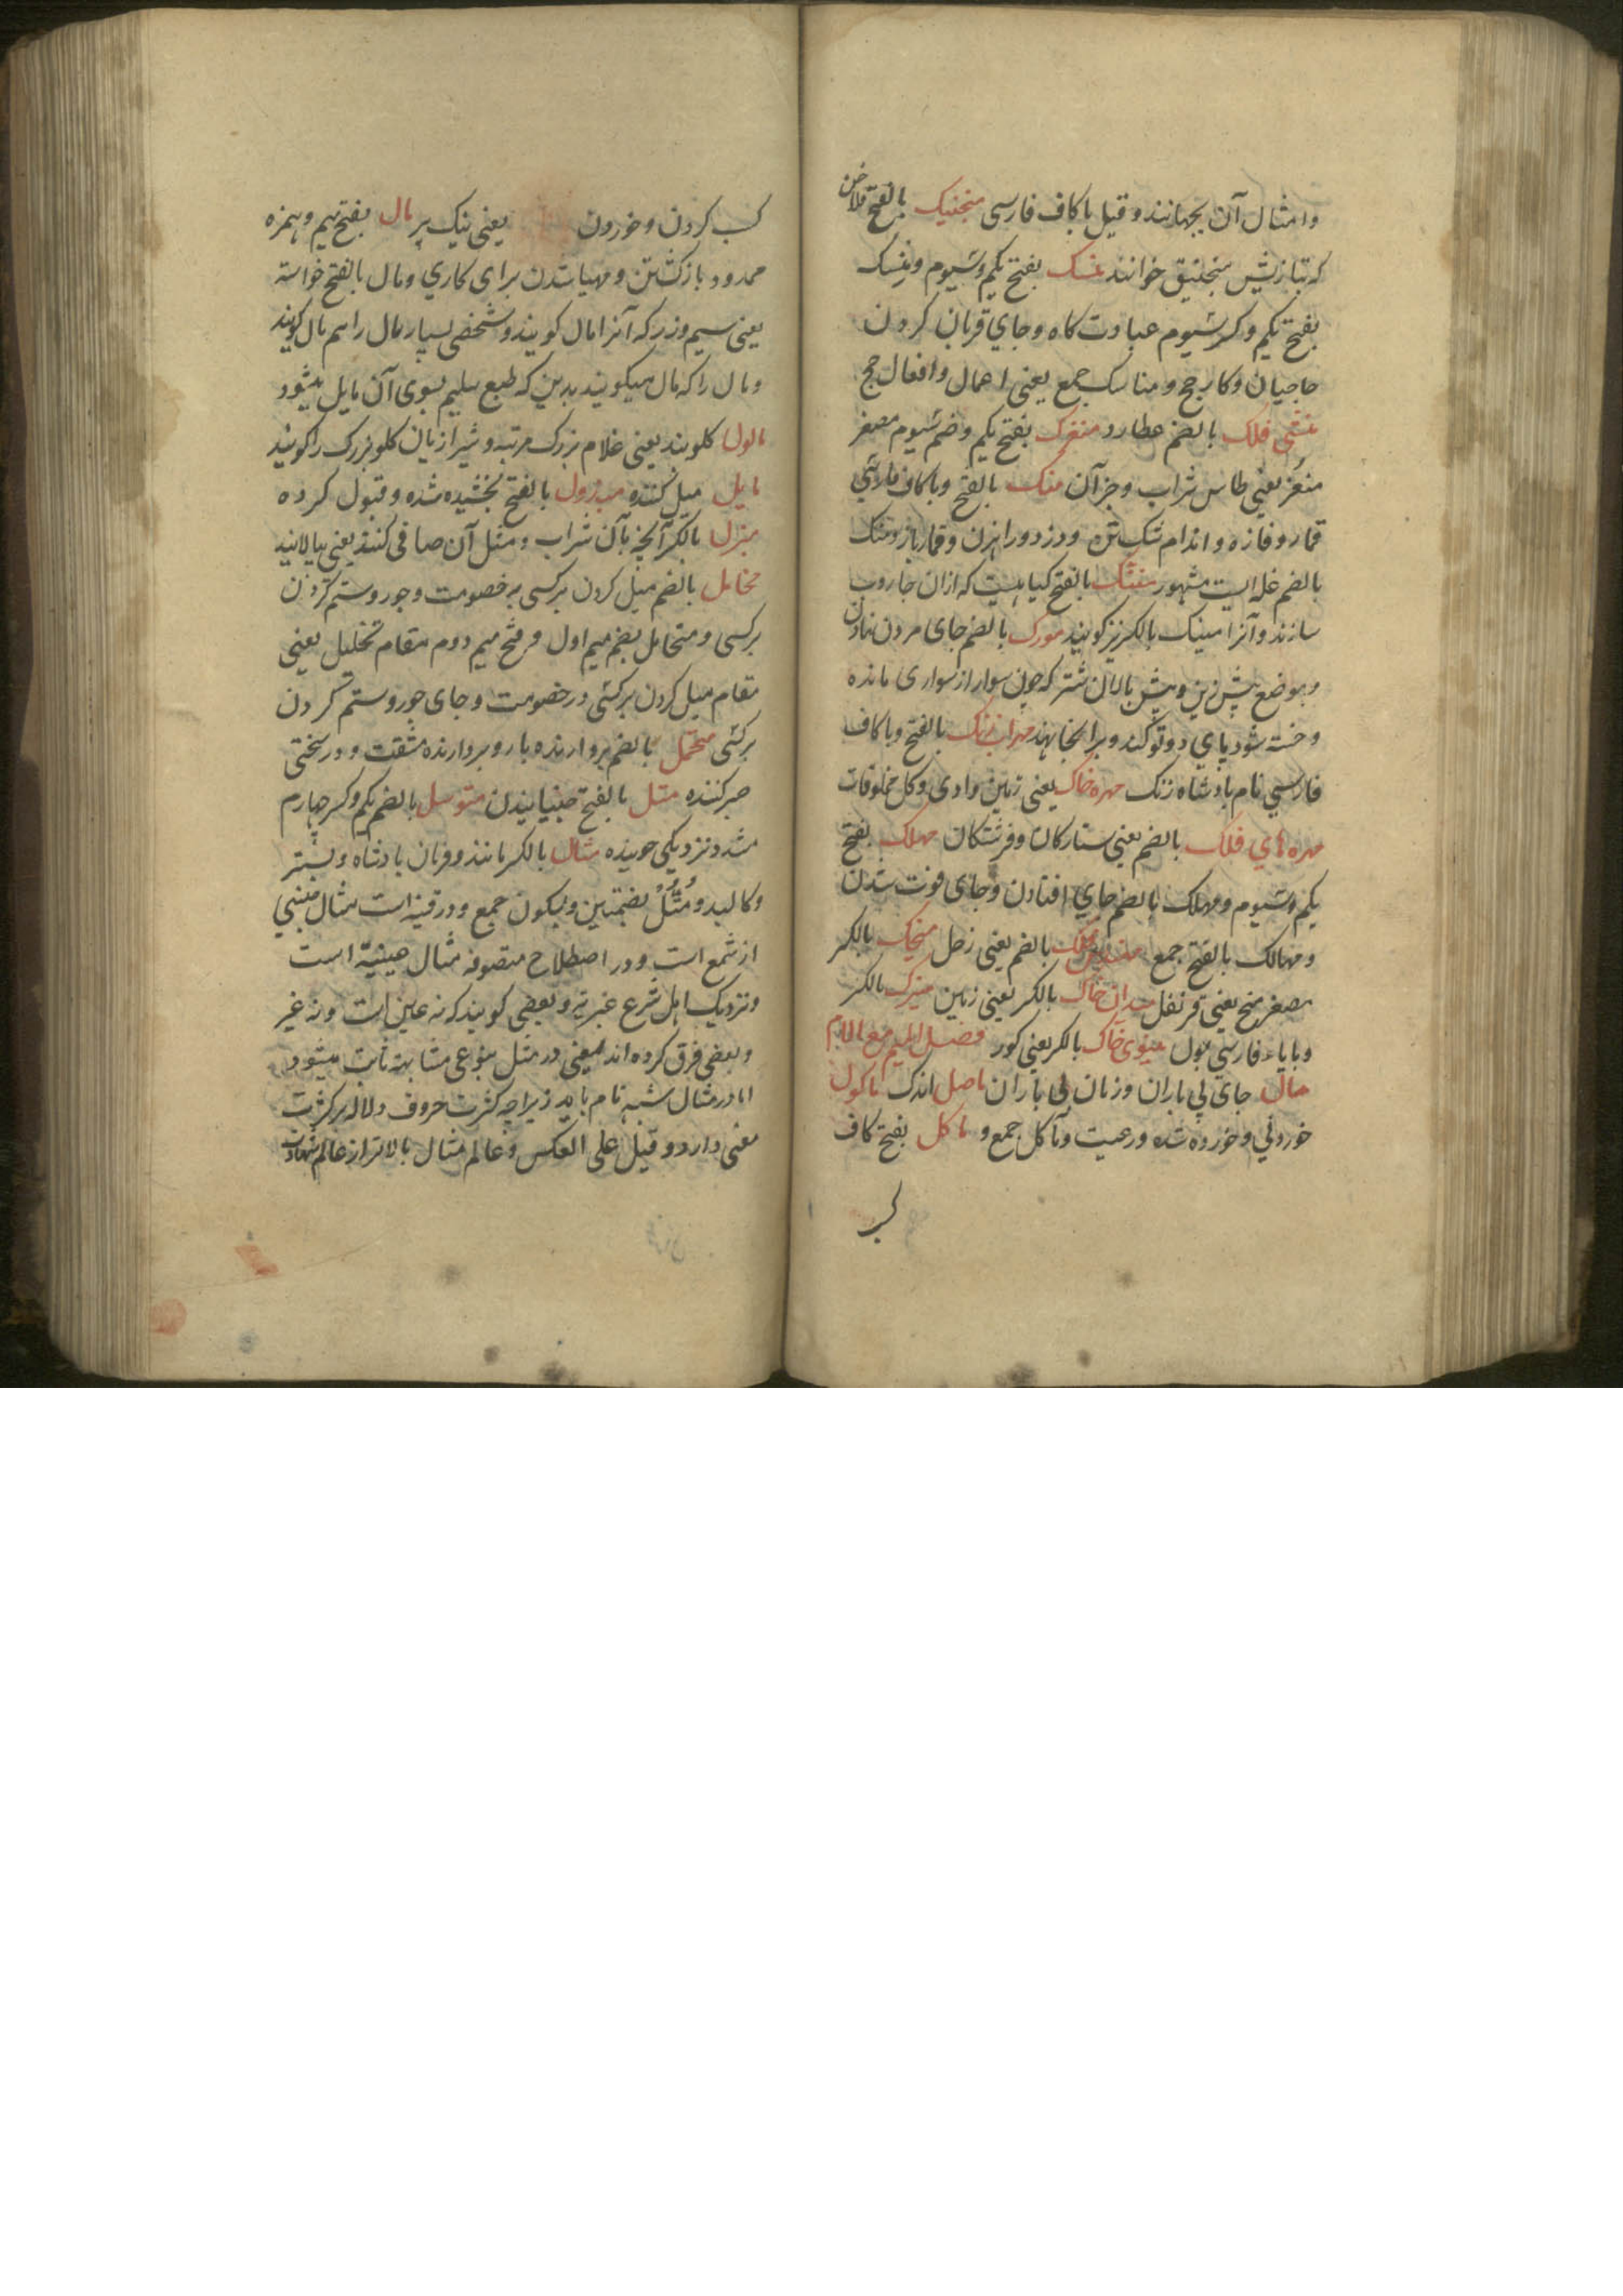 وامثال آن بجهانند و قیل با کاف فارسی منجنیک بالفتح فلاخن
که بتازیش منجنیق خوانند منسک بفتح یکم و سیوم و منسک
بفتح یکم و کسر سیوم عبادت کاه و جاي قربان کردن
حاجیان و کار حج و مناسک جمع یعنی اعمال وافعال حج
منشی فلک بالضم عطارد منغرک بفتح یکم و ضم سیوم مصغر
منغر یعنی طاس شراب و جز آن منک بالفتح و با کاف فارسی
قمار و فازه و اندام شکستن و دزد و راهزن و قمار باز و منک
بالضم غله ایست مشهور منشک بالفتح کیاهیست که ازان جاروب
سازند و آنرا مینک بالکسر نیز کویند مورک بالضم جای مردن نهادن
و موضع پیش زین و پیش پالان شتر که چون سوار از سواری مانده
و خسته شود پاي دوتو کند و برانجا نهد مهراب زنک بالفتح و با کاف
فارسي نام پادشاه زنک مهره خاک یعنی زمین و ادمی و کل مخلوقات
مهره هاي فلک بالضم یعنی ستارکان و فرشتکان مهلک بفتح
یکم و سیوم و مهلک بالضم جاي افتادن و جای فوت شدن
و مهالک بالفتح جمع فلک بالضم یعنی زحل میخک بالکسر
مصغر میخ یعنی قرنفل میدان خاک بالکسر یعنی زمین میزک بالکسر
و بایاء فارسي بول مینوی خاک بالکسر یعنی کور فصل المیم مع اللام
ماحل جاي بي باران و زمان بی باران ماصل اندک ماکول
خوردني و خورده شده و رعیت و مآکل جمع و ماکل بفتح کاف
کسب
کسب کردن و خوردن یعنی نیک پر مال بفتح میم و همزه
ممدود بازکشتن و مهیا شدن برای کاري و مال بالفتح خواسته
یعنی سیم و زر که آنرا مال کویند و شخصی بسیار مال را هم مال کویند
و مال را که مال میکویند بدین که طبع سلیم بسوی آن مایل میشود
مالول کلو بند یعنی غلام بزرک مرتبه و شیرازیان کلو بزرک را کویند
مایل میل کننده مبذول بالفتح بخشیده شده و قبول کرده
مبزل بالکسر آنچه بآن شراب و مثل آن صافی کنند یعنی بپالایند
متحامل بالضم میل کردن بر کسی بر خصومت و جور و ستم کردن
بر کسی و متحامل بضم میم اول و فتح میم دوم مقام تحلیل یعنی
مقام میل کردن بر کسی در خصومت و جای جور و ستم کردن
بر کسی متحمل بالضم بردارنده بار و بردارنده مشقت و در سختی
صبر کننده متل بالفتح جنبانیدن متوسل بالضم یکم و کسر چهارم
مشدد نزدیکی جوینده مثال بالکسر مانند و فرمان پادشاه و بستر
و کالبد و مُثُل بضمتین و بسکون جمع و در قنیه است مثال مبنی
از شمع است و در اصطلاح متصوفه مثال عینیة است
و نزدیک اهل شرع غیریة و بعضی کویند که نه عین است و نه غیر
و بعضی فرق کرده اند یعنی در مثل بنوعی مشابهة ثابت میشود
اما در مثال شبه تام باید زیرا چه کثرت حروف دلاله بر کثرت
معنی دارد و قیل علی العکس و عالم مثال بالاتر از عالم شهادت